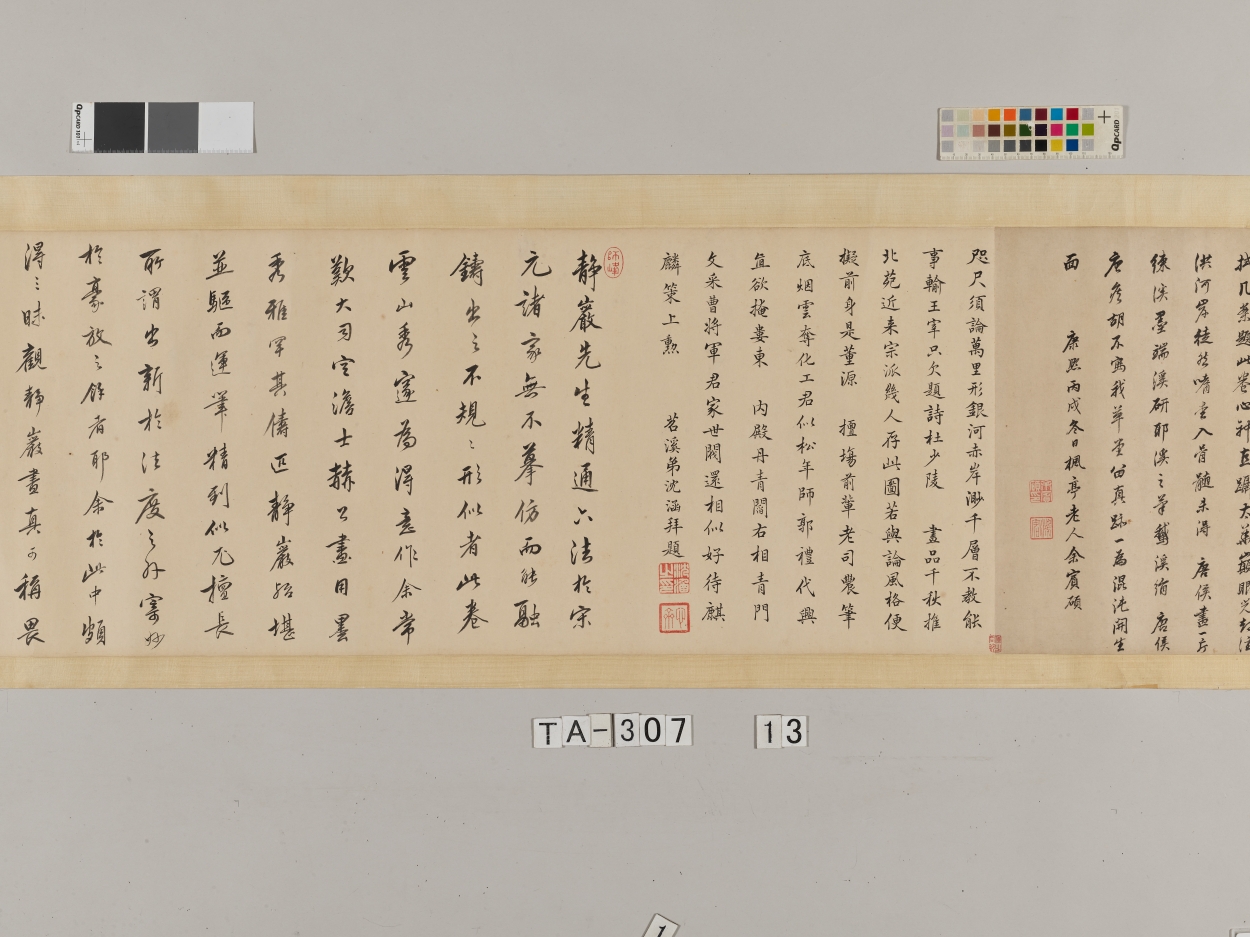 洪河岸徒
入骨髓未得 唐侯畫一
溪墨端溪研耶溪之筆
唐侯胡不寫我草堂留真跡一為混沌開生
面 康熙丙戌冬日楓亭老人余賓碩
咫尺須論萬里形銀河赤岸渺千層不教能
事輸王宰只欠題詩杜少陵 畫品千秋推
北苑近来宗派幾人存此圖若與論風格便
擬前身是董源 擅塲前輩老司農筆
底烟雲奪化工君似松年師郭禮代興
直欲掩婁東 内殿丹青閻右相青門
文采曹將軍君家世閥還相似好待麒
麟策上勲 苕溪弟沈涵拜題
静巖先生精通六法於宋
元諸家無不摹仿而能融
鑄出之不規〻形似者此卷
雲山秀邃為得意作余常
歎大司空澹士赫公畫用墨
秀雅罕其儔匹静巖殆堪
並驅而運筆精到似尤擅長
所謂出新於法度之外寄妙
於豪放之餘者耶余於此中頗
得三昧觀静巖畫真可稱畏
QPCARD 101
QPCARD
TA-307 13
1